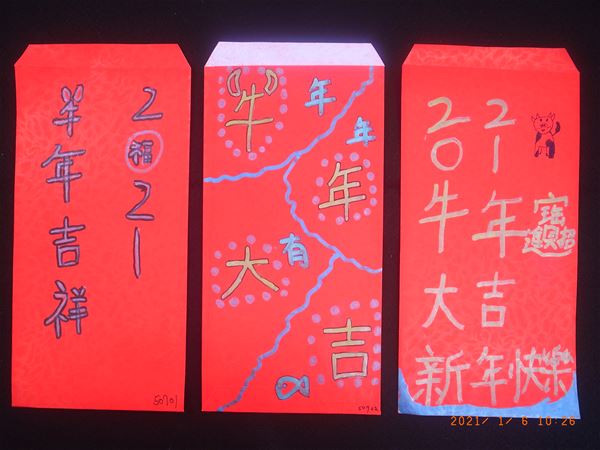 2福21
牛年吉祥
50701
牛年大吉
年年有
50702
2021
牛年
大吉
招財進寶
新年快樂
2021/ 1/ 6 10:26